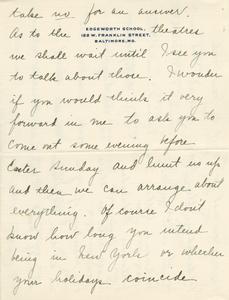 take no for an answer.
EDGEWORTH SCHOOL,
122 W. FRANKLIN STREET,
BALTIMORE, MD.
As to the theatres
we shall wait until I see you
to talk about those. I wonder
if you would think it very
forward in me to ask you to
come out some evening before
Easter Sunday and hunt us up
and then we can arrange about
everything. Of course I don't
know how long you intend
being in New York or whether
your holidays coincide